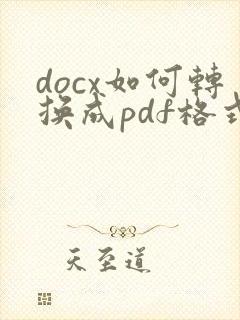 docx如何轉
換成pdf格式
天至道